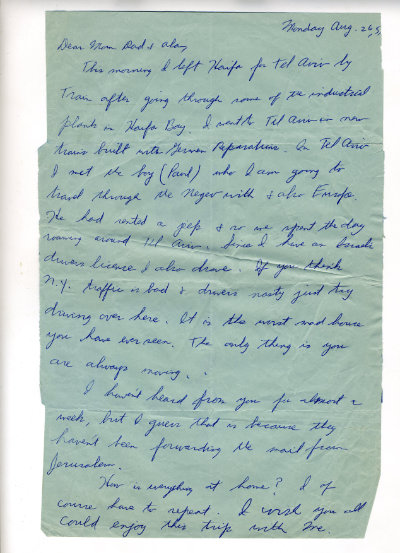 Monday Aug. 26,5
Dear Mom Dad & Alan,
This morning I left Haifa for Tel Aviv by
Train after going through some of the industrial
plants in Haifa Bay. I went to Tel Aviv in new
trains built with German Reparations. In Tel Aviv
I met the boy (Paul) who I am going to
travel through the Negev with & also Europe.
He had rented a jeep & so we spent the day
roaming around Tel Aviv. Since I have an Israeli
drivers license I also drove. If you think
N.Y. traffic is bad & drivers nasty just try
driving over here. It is the worst mad house
you have ever seen. The only thing is you
are always moving..
I haven't heard from you for almost a
week, but I guess that is because they
havent been forwarding the mail from
Jerusalem.
How is everything at home? I of
course have to repeat. I wish you all
could enjoy this trip with me.